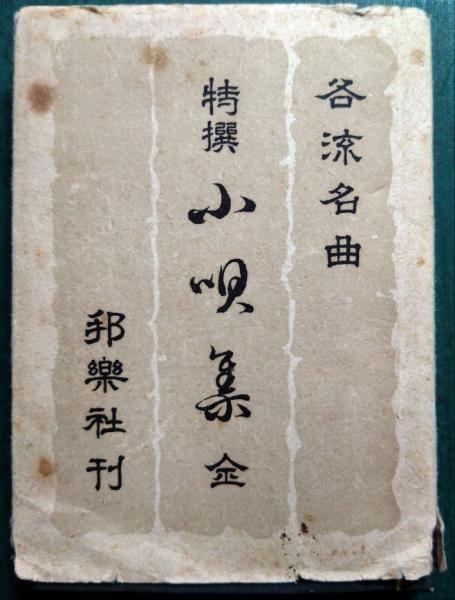 各流名曲
特撰 小唄集 全
邦樂社刊